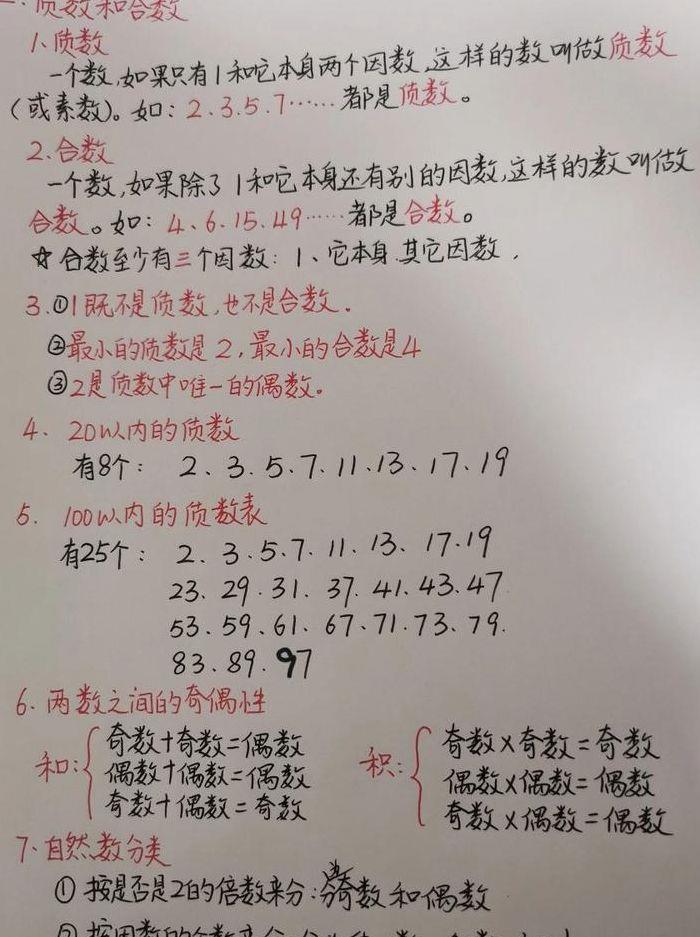 一、质数和合数
1、质数
一个数,如果只有1和它本身两个因数,这样的数叫做质数
(或素数)。如：2.3.5.7……都是质数。
2.合数
一个数,如果除了1和它本身还有别的因数,这样的数叫做
合数。如：4、6.15.49……都是合数。
☆合数至少有三个因数：1、它本身.其它因数.
3.①1既不是质数,也不是合数.
②最小的质数是2,最小的合数是4
③2是质数中唯一的偶数。
4、20以内的质数
有8个：2、3.5.7.11.13.17.19
5.100以内的质数表
有25个：2、3.5.7.11.13、17.19
23、29.31.37.41.43.47
53、59、61、67、71.73、79.
83.89.97
6.两数之间的奇偶性
和:{奇数+奇数=偶数 积:{奇数×奇数=奇数
偶数+偶数=偶数 偶数×偶数=偶数
奇数+偶数=奇数 奇数×偶数=偶数
7.自然数分类
①按是否是2的倍数来分:分奇数和偶数
②按因数的个数来分